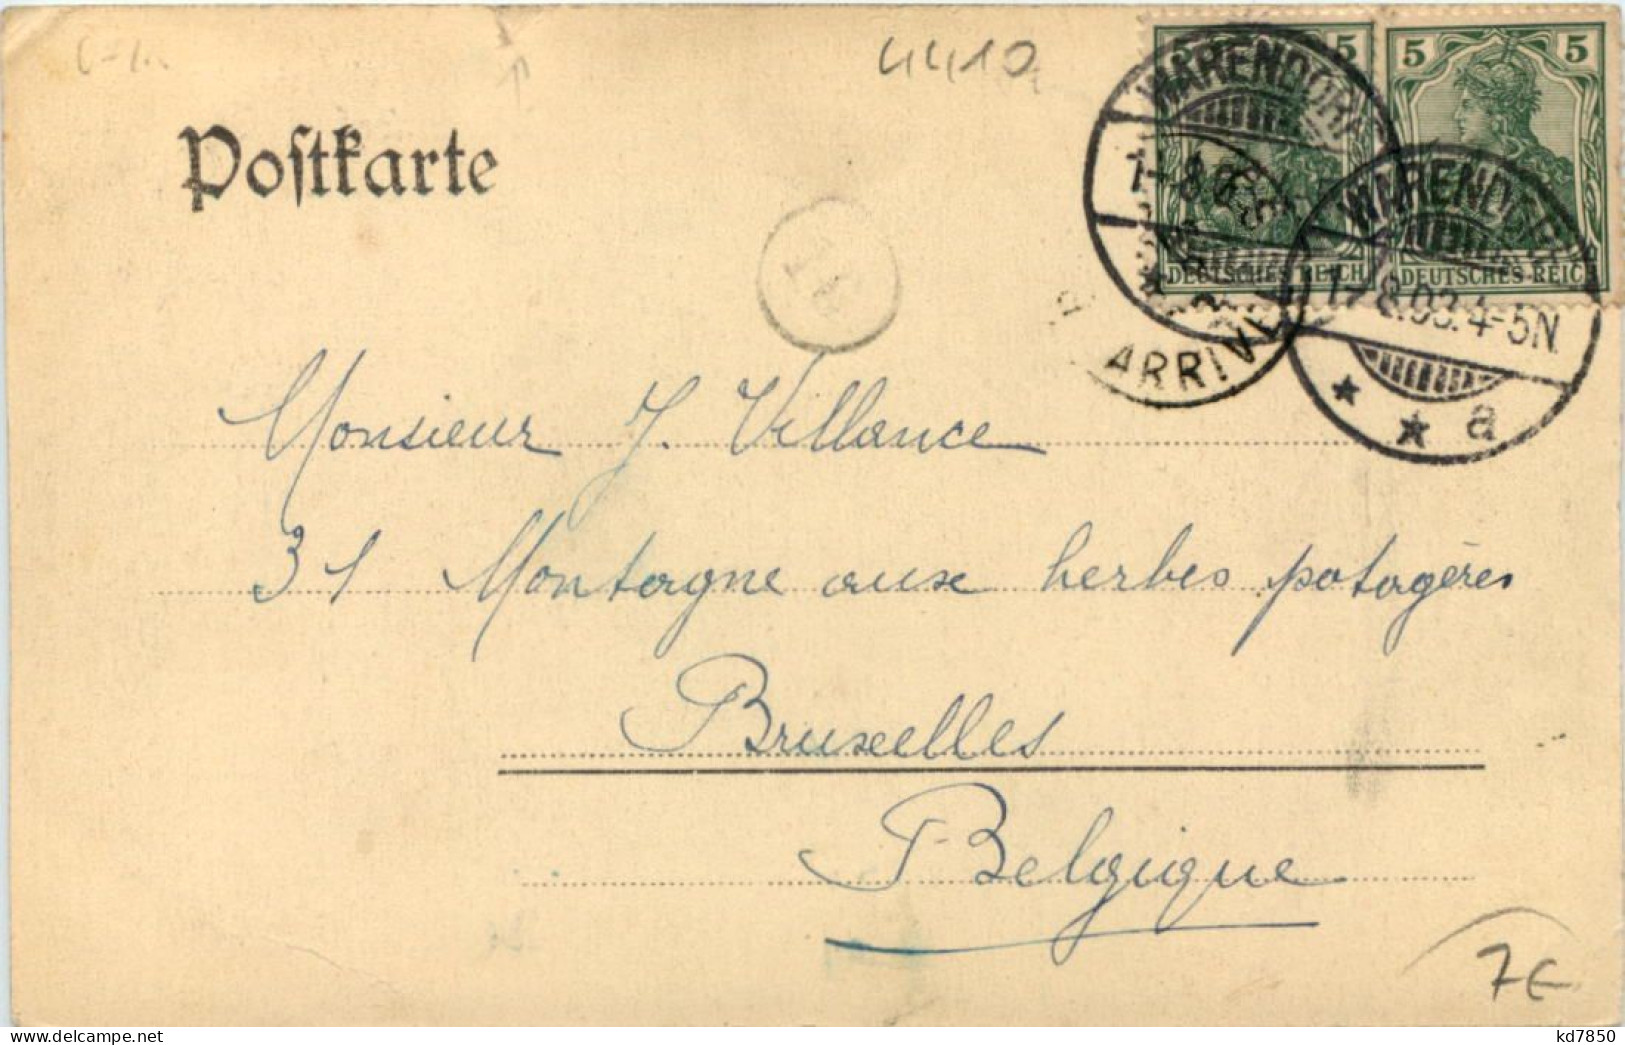 4410
Postkarte
5 5
5 5
WARENDORF
WARENDORF
DEUTSCHES REICH
DEUTSCHES REICH
1-8.03.4-5N.
ARRIVÉE
a
Monsieur J. Villance
31 Montagne aux herbes potagères
Bruxelles
Belgique
7€
kd7850